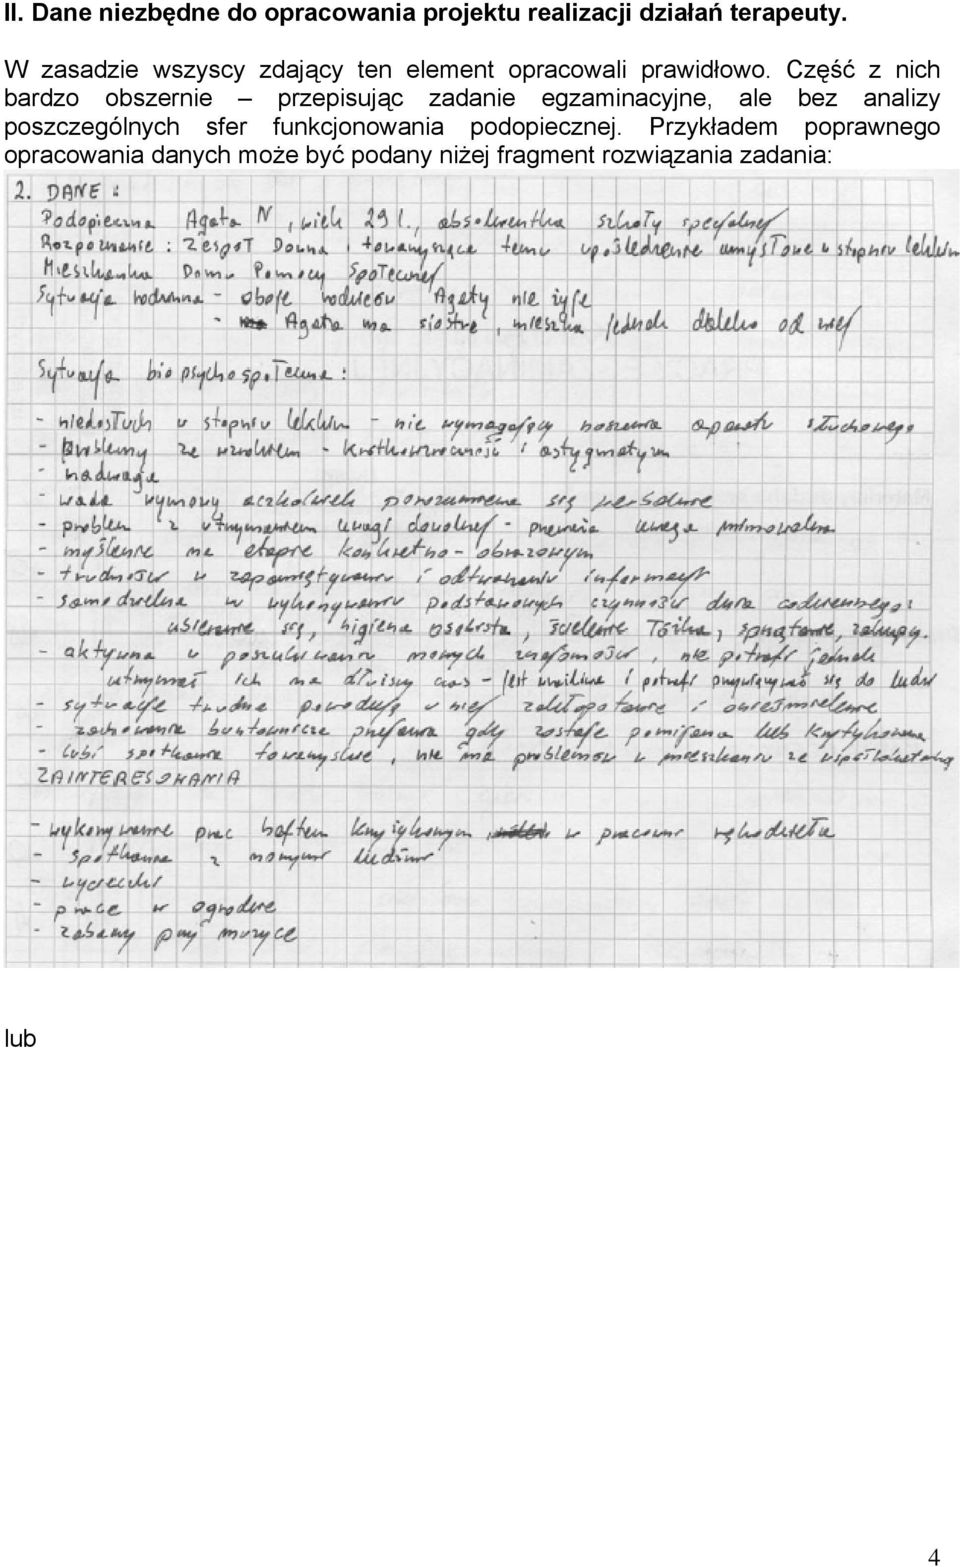 II. Dane niezbędne do opracowania projektu realizacji działań terapeuty.
W zasadzie wszyscy zdający ten element opracowali prawidłowo. Część z nich
bardzo obszernie – przepisując zadanie egzaminacyjne, ale bez analizy
poszczególnych sfer funkcjonowania podopiecznej. Przykładem poprawnego
opracowania danych może być podany niżej fragment rozwiązania zadania:
2. DANE :
Podopieczna Agata N, wiek 29 l., absolwentka szkoły specjalnej
Rozpoznanie : Zespół Downa i towarzyszące temu upośledzenie umysłowe w stopniu lekkim
Mieszkanka Domu Pomocy Społecznej
Sytuacja rodzinna - oboje rodziców Agaty nie żyje
- Agata ma siostrę, mieszka jednak daleko od niej
Sytuacja biopsychospołeczna :
- niedosłuch w stopniu lekkim - nie wymagający noszenia aparatu słuchowego
- problemy ze wzrokiem - krótkowzroczność i astygmatyzm
- nadwaga
- wada wymowy aczkolwiek porozumiewa się werbalnie
- problem z utrzymaniem uwagi dowolnej - przeważa uwaga mimowolna
- myślenie na etapie konkretno - obrazowym
- trudności w zapamiętywaniu i odtwarzaniu informacji
- samodzielna w wykonywaniu podstawowych czynności dnia codziennego:
ubieranie się, higiena osobista, ścielenie łóżka, sprzątanie, zakupy.
- aktywna w poszukiwaniu nowych znajomości, nie potrafi jednak
utrzymać ich na dłuższy czas - jest wrażliwa i potrafi przywiązywać się do ludzi
- sytuacje trudne powodują w niej zakłopotanie i onieśmielenie
- zachowanie buntownicze przejawia gdy zostaje pomijana lub krytykowana
- lubi spotkania towarzyskie, nie ma problemów w mieszkaniu ze współlokatorką
ZAINTERESOWANIA
- wykonywanie prac haftem krzyżykowym w pracowni rękodzieła
- spotkania z nowymi ludźmi
- wycieczki
- prace w ogrodzie
- zabawy przy muzyce
lub
4